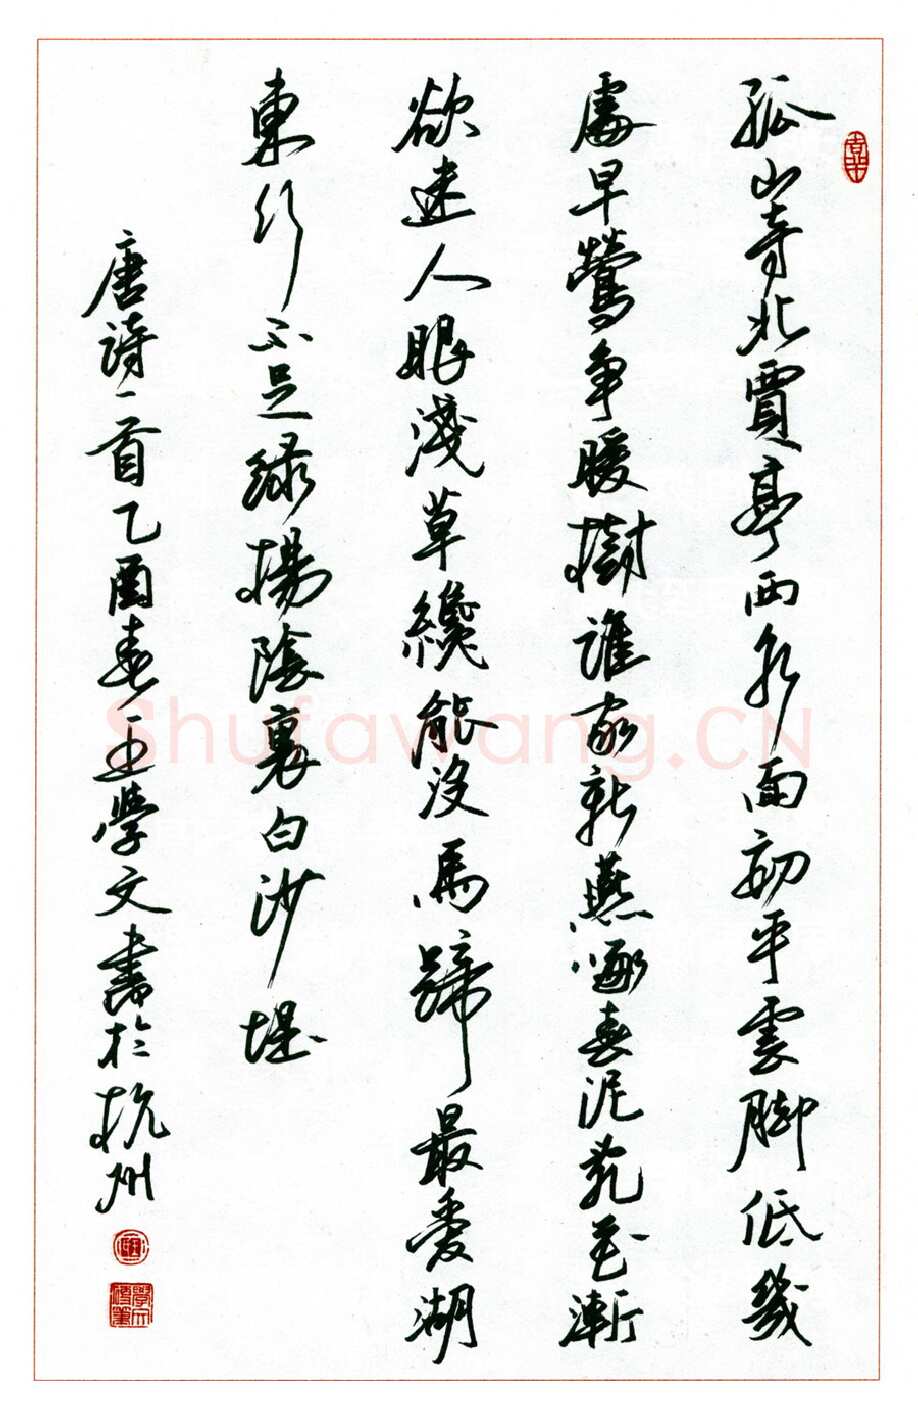 孤山寺北賈亭西水面初平雲脚低幾
處早鶯争暖樹誰家新燕啄春泥亂花漸
欲迷人眼淺草纔能没馬蹄最愛湖
東行不足緑楊陰裏白沙堤
唐詩一首乙酉春王學文書於杭州
Shufawang.CN